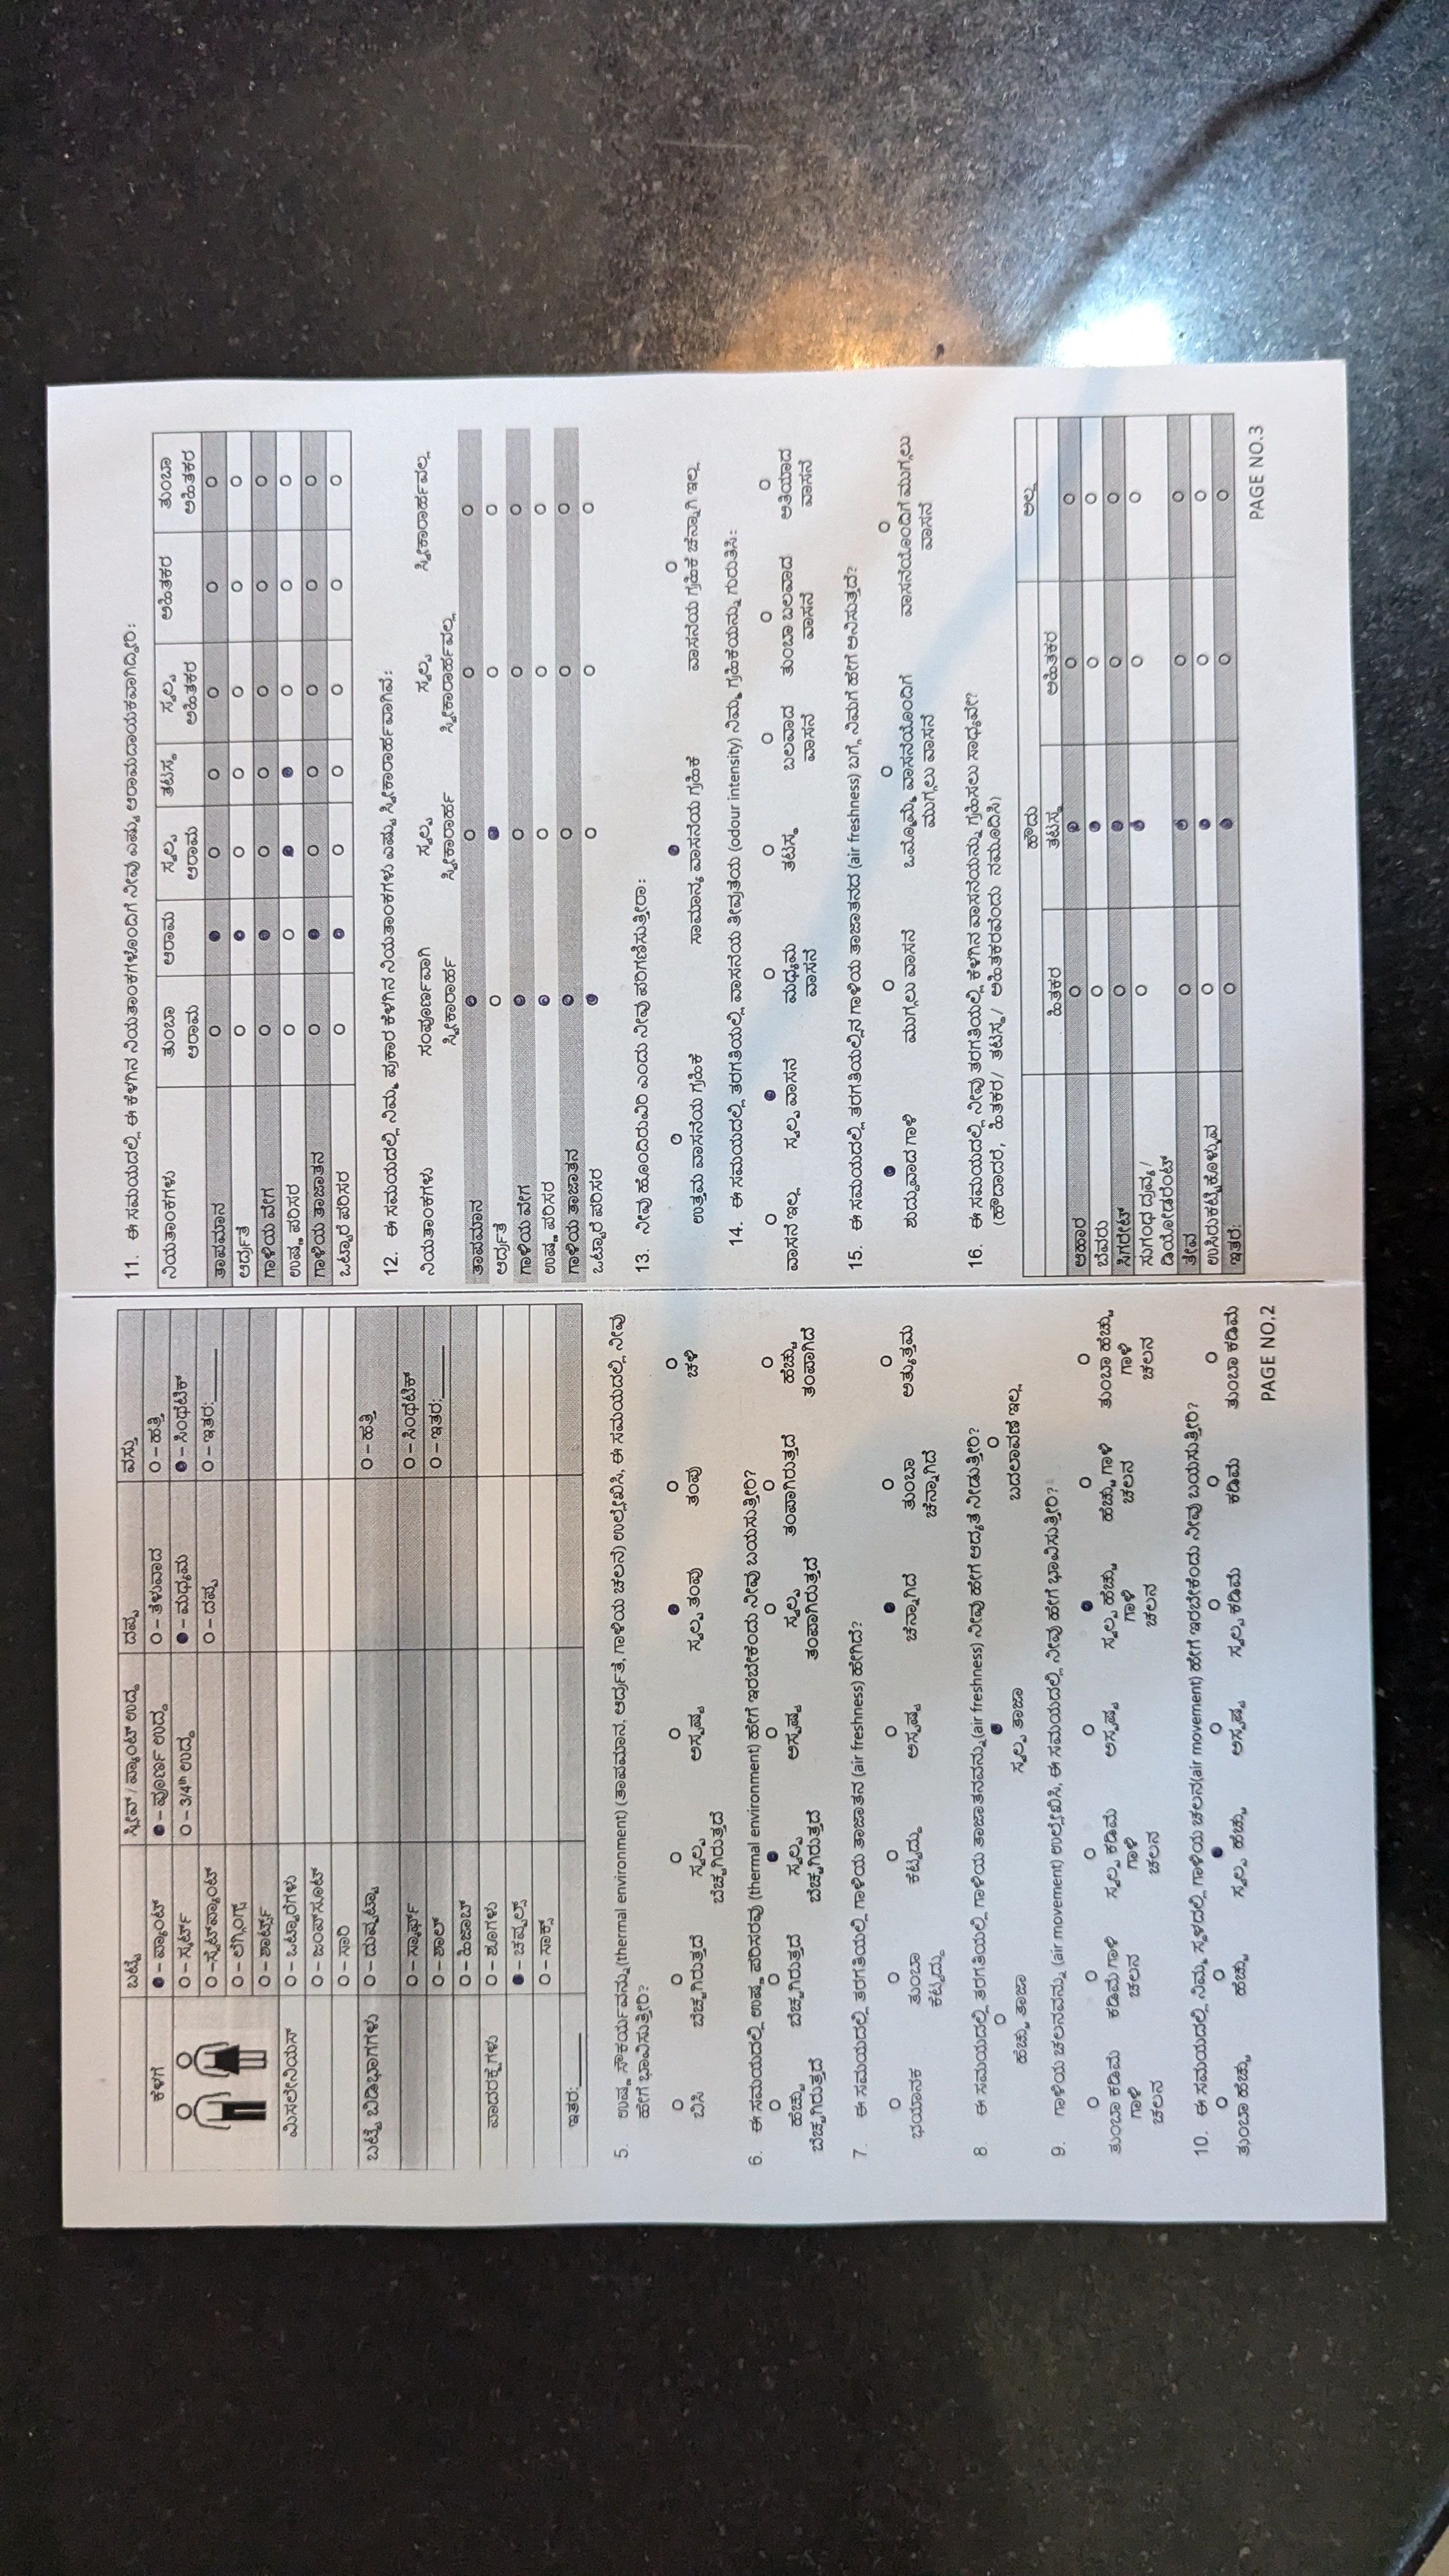 ಬಟ್ಟೆ ಸ್ಲೀವ್ / ಪ್ಯಾಂಟ್ ಉದ್ದ ದಪ್ಪ ವಸ್ತು
ಕೆಳಗೆ ● – ಪ್ಯಾಂಟ್ ● – ಪೂರ್ಣ ಉದ್ದ O – ತೆಳುವಾದ O – ಹತ್ತಿ
O – ಸ್ಕರ್ಟ್ O – 3/4th ಉದ್ದ ● – ಮಧ್ಯಮ ● – ಸಿಂಥೆಟಿಕ್
O –ಸ್ವೆಟ್‌ಪ್ಯಾಂಟ್ O – ದಪ್ಪ O – ಇತರ:______
O – ಲೆಗ್ಗಿಂಗ್ಸ್
O – ಶಾರ್ಟ್ಸ್
ಮಿಸಲೇನಿಯಸ್ O – ಒಟ್ಟಾರೆಗಳು
O – ಜಂಪ್‌ಸೂಟ್
O – ಸಾರಿ
ಬಟ್ಟೆ ಬಿಡಿಭಾಗಗಳು O – ದುಪ್ಪಟ್ಟಾ O – ಹತ್ತಿ
O – ಸ್ಕಾರ್ಫ್ O – ಸಿಂಥೆಟಿಕ್
O – ಶಾಲ್ O – ಇತರ:______
O – ಹಿಜಾಬ್
ಪಾದರಕ್ಷೆಗಳು O – ಶೂಗಳು
● – ಚಪ್ಪಲ್ಸ್
O – ಸಾಕ್ಸ್
ಇತರ:______
5. ಉಷ್ಣ ಸೌಕರ್ಯವನ್ನು(thermal environment) (ತಾಪಮಾನ, ಆರ್ದ್ರತೆ, ಗಾಳಿಯ ಚಲನೆ) ಉಲ್ಲೇಖಿಸಿ, ಈ ಸಮಯದಲ್ಲಿ ನೀವು
ಹೇಗೆ ಭಾವಿಸುತ್ತೀರಿ?
O O O O ● O O
ಬಿಸಿ ಬೆಚ್ಚಗಿರುತ್ತದೆ ಸ್ವಲ್ಪ ಅಸ್ಪಷ್ಟ ಸ್ವಲ್ಪ ತಂಪು ತಂಪು ಚಳಿ
ಬೆಚ್ಚಗಿರುತ್ತದೆ
6. ಈ ಸಮಯದಲ್ಲಿ ಉಷ್ಣ ಪರಿಸರವು (thermal environment) ಹೇಗೆ ಇರಬೇಕೆಂದು ನೀವು ಬಯಸುತ್ತೀರಿ?
O O ● O O O O
ಹೆಚ್ಚು ಬೆಚ್ಚಗಿರುತ್ತದೆ ಸ್ವಲ್ಪ ಅಸ್ಪಷ್ಟ ಸ್ವಲ್ಪ ತಂಪಾಗಿರುತ್ತದೆ ಹೆಚ್ಚು
ಬೆಚ್ಚಗಿರುತ್ತದೆ ಬೆಚ್ಚಗಿರುತ್ತದೆ ತಂಪಾಗಿರುತ್ತದೆ ತಂಪಾಗಿದೆ
7. ಈ ಸಮಯದಲ್ಲಿ ತರಗತಿಯಲ್ಲಿ ಗಾಳಿಯ ತಾಜಾತನ (air freshness) ಹೇಗಿದೆ?
O O O O ● O O
ಭಯಾನಕ ತುಂಬಾ ಕೆಟ್ಟದ್ದು ಅಸ್ಪಷ್ಟ ಚೆನ್ನಾಗಿದೆ ತುಂಬಾ ಅತ್ಯುತ್ತಮ
ಕೆಟ್ಟದ್ದು ಚೆನ್ನಾಗಿದೆ
8. ಈ ಸಮಯದಲ್ಲಿ ತರಗತಿಯಲ್ಲಿ ಗಾಳಿಯ ತಾಜಾತನವನ್ನು(air freshness) ನೀವು ಹೇಗೆ ಆದ್ಯತೆ ನೀಡುತ್ತೀರಿ?
O ● O
ಹೆಚ್ಚು ತಾಜಾ ಸ್ವಲ್ಪ ತಾಜಾ ಬದಲಾವಣೆ ಇಲ್ಲ
9. ಗಾಳಿಯ ಚಲನವನ್ನು (air movement) ಉಲ್ಲೇಖಿಸಿ, ಈ ಸಮಯದಲ್ಲಿ ನೀವು ಹೇಗೆ ಭಾವಿಸುತ್ತೀರಿ?
O O O O ● O O
ತುಂಬಾ ಕಡಿಮೆ ಕಡಿಮೆ ಗಾಳಿ ಸ್ವಲ್ಪ ಕಡಿಮೆ ಅಸ್ಪಷ್ಟ ಸ್ವಲ್ಪ ಹೆಚ್ಚು ಹೆಚ್ಚು ಗಾಳಿ ತುಂಬಾ ಹೆಚ್ಚು
ಗಾಳಿ ಚಲನ ಗಾಳಿ ಗಾಳಿ ಚಲನ ಗಾಳಿ
ಚಲನ ಚಲನ ಚಲನ ಚಲನ
10. ಈ ಸಮಯದಲ್ಲಿ ನಿಮ್ಮ ಸ್ಥಳದಲ್ಲಿ ಗಾಳಿಯ ಚಲನ(air movement) ಹೇಗೆ ಇರಬೇಕೆಂದು ನೀವು ಬಯಸುತ್ತೀರಿ?
O O ● O O O O
ತುಂಬಾ ಹೆಚ್ಚು ಹೆಚ್ಚು ಸ್ವಲ್ಪ ಹೆಚ್ಚು ಅಸ್ಪಷ್ಟ ಸ್ವಲ್ಪ ಕಡಿಮೆ ಕಡಿಮೆ ತುಂಬಾ ಕಡಿಮೆ
PAGE NO.2
11. ಈ ಸಮಯದಲ್ಲಿ ಈ ಕೆಳಗಿನ ನಿಯತಾಂಕಗಳೊಂದಿಗೆ ನೀವು ಎಷ್ಟು ಆರಾಮದಾಯಕವಾಗಿದ್ದೀರಿ:
ನಿಯತಾಂಕಗಳು ತುಂಬಾ ಆರಾಮ ಸ್ವಲ್ಪ ತಟಸ್ಥ ಸ್ವಲ್ಪ ಅಹಿತಕರ ತುಂಬಾ
ಆರಾಮ ಆರಾಮ ಅಹಿತಕರ ಅಹಿತಕರ
ತಾಪಮಾನ O ● O O O O O
ಆರ್ದ್ರತೆ O ● O O O O O
ಗಾಳಿಯ ವೇಗ O ● O O O O O
ಉಷ್ಣ ಪರಿಸರ O O ● ● O O O
ಗಾಳಿಯ ತಾಜಾತನ O ● O O O O O
ಒಟ್ಟಾರೆ ಪರಿಸರ O ● O O O O O
12. ಈ ಸಮಯದಲ್ಲಿ ನಿಮ್ಮ ಪ್ರಕಾರ ಕೆಳಗಿನ ನಿಯತಾಂಕಗಳು ಎಷ್ಟು ಸ್ವೀಕಾರಾರ್ಹವಾಗಿವೆ:
ನಿಯತಾಂಕಗಳು ಸಂಪೂರ್ಣವಾಗಿ ಸ್ವಲ್ಪ ಸ್ವಲ್ಪ ಸ್ವೀಕಾರಾರ್ಹವಲ್ಲ
ಸ್ವೀಕಾರಾರ್ಹ ಸ್ವೀಕಾರಾರ್ಹ ಸ್ವೀಕಾರಾರ್ಹವಲ್ಲ
ತಾಪಮಾನ ● O O O
ಆರ್ದ್ರತೆ O ● O O
ಗಾಳಿಯ ವೇಗ ● O O O
ಉಷ್ಣ ಪರಿಸರ ● O O O
ಗಾಳಿಯ ತಾಜಾತನ ● O O O
ಒಟ್ಟಾರೆ ಪರಿಸರ ● O O O
13. ನೀವು ಹೊಂದಿರುವಿರಿ ಎಂದು ನೀವು ಪರಿಗಣಿಸುತ್ತೀರಾ:
O ● O
ಉತ್ತಮ ವಾಸನೆಯ ಗ್ರಹಿಕೆ ಸಾಮಾನ್ಯ ವಾಸನೆಯ ಗ್ರಹಿಕೆ ವಾಸನೆಯ ಗ್ರಹಿಕೆ ಚೆನ್ನಾಗಿ ಇಲ್ಲ
14. ಈ ಸಮಯದಲ್ಲಿ ತರಗತಿಯಲ್ಲಿ ವಾಸನೆಯ ತೀವ್ರತೆಯ (odour intensity) ನಿಮ್ಮ ಗ್ರಹಿಕೆಯನ್ನು ಗುರುತಿಸಿ:
O ● O O O O O
ವಾಸನೆ ಇಲ್ಲ ಸ್ವಲ್ಪ ವಾಸನೆ ಮಧ್ಯಮ ತಟಸ್ಥ ಬಲವಾದ ತುಂಬಾ ಬಲವಾದ ಅತಿಯಾದ
ವಾಸನೆ ವಾಸನೆ ವಾಸನೆ ವಾಸನೆ
15. ಈ ಸಮಯದಲ್ಲಿ ತರಗತಿಯಲ್ಲಿನ ಗಾಳಿಯ ತಾಜಾತನದ (air freshness) ಬಗ್ಗೆ ನಿಮಗೆ ಹೇಗೆ ಅನಿಸುತ್ತದೆ?
● O O O
ಶುದ್ಧವಾದ ಗಾಳಿ ಮುಗ್ಗಲು ವಾಸನೆ ಒಮ್ಮೊಮ್ಮೆ ವಾಸನೆಯೊಂದಿಗೆ ವಾಸನೆಯೊಂದಿಗೆ ಮುಗ್ಗಲು
ಮುಗ್ಗಲು ವಾಸನೆ ವಾಸನೆ
16. ಈ ಸಮಯದಲ್ಲಿ ನೀವು ತರಗತಿಯಲ್ಲಿ ಕೆಳಗಿನ ವಾಸನೆಯನ್ನು ಗ್ರಹಿಸಲು ಸಾಧ್ಯವೇ?
(ಹೌದಾದರೆ, ಹಿತಕರ/ ತಟಸ್ಥ/ ಅಹಿತಕರವೆಂದು ನಮೂದಿಸಿ)
ಹೌದು ಅಲ್ಲ
ಹಿತಕರ ತಟಸ್ಥ ಅಹಿತಕರ
ಆಹಾರ O ● O O
ಬೆವರು O ● O O
ಸಿಗರೇಟ್ O ● O O
ಸುಗಂಧ ದ್ರವ್ಯ/ O ● O O
ಡಿಯೋಡರೆಂಟ್
ತೇವ O ● O O
ಉಸಿರುಕಟ್ಟಿಕೊಳ್ಳುವ O ● O O
ಇತರ: O ● O O
PAGE NO.3